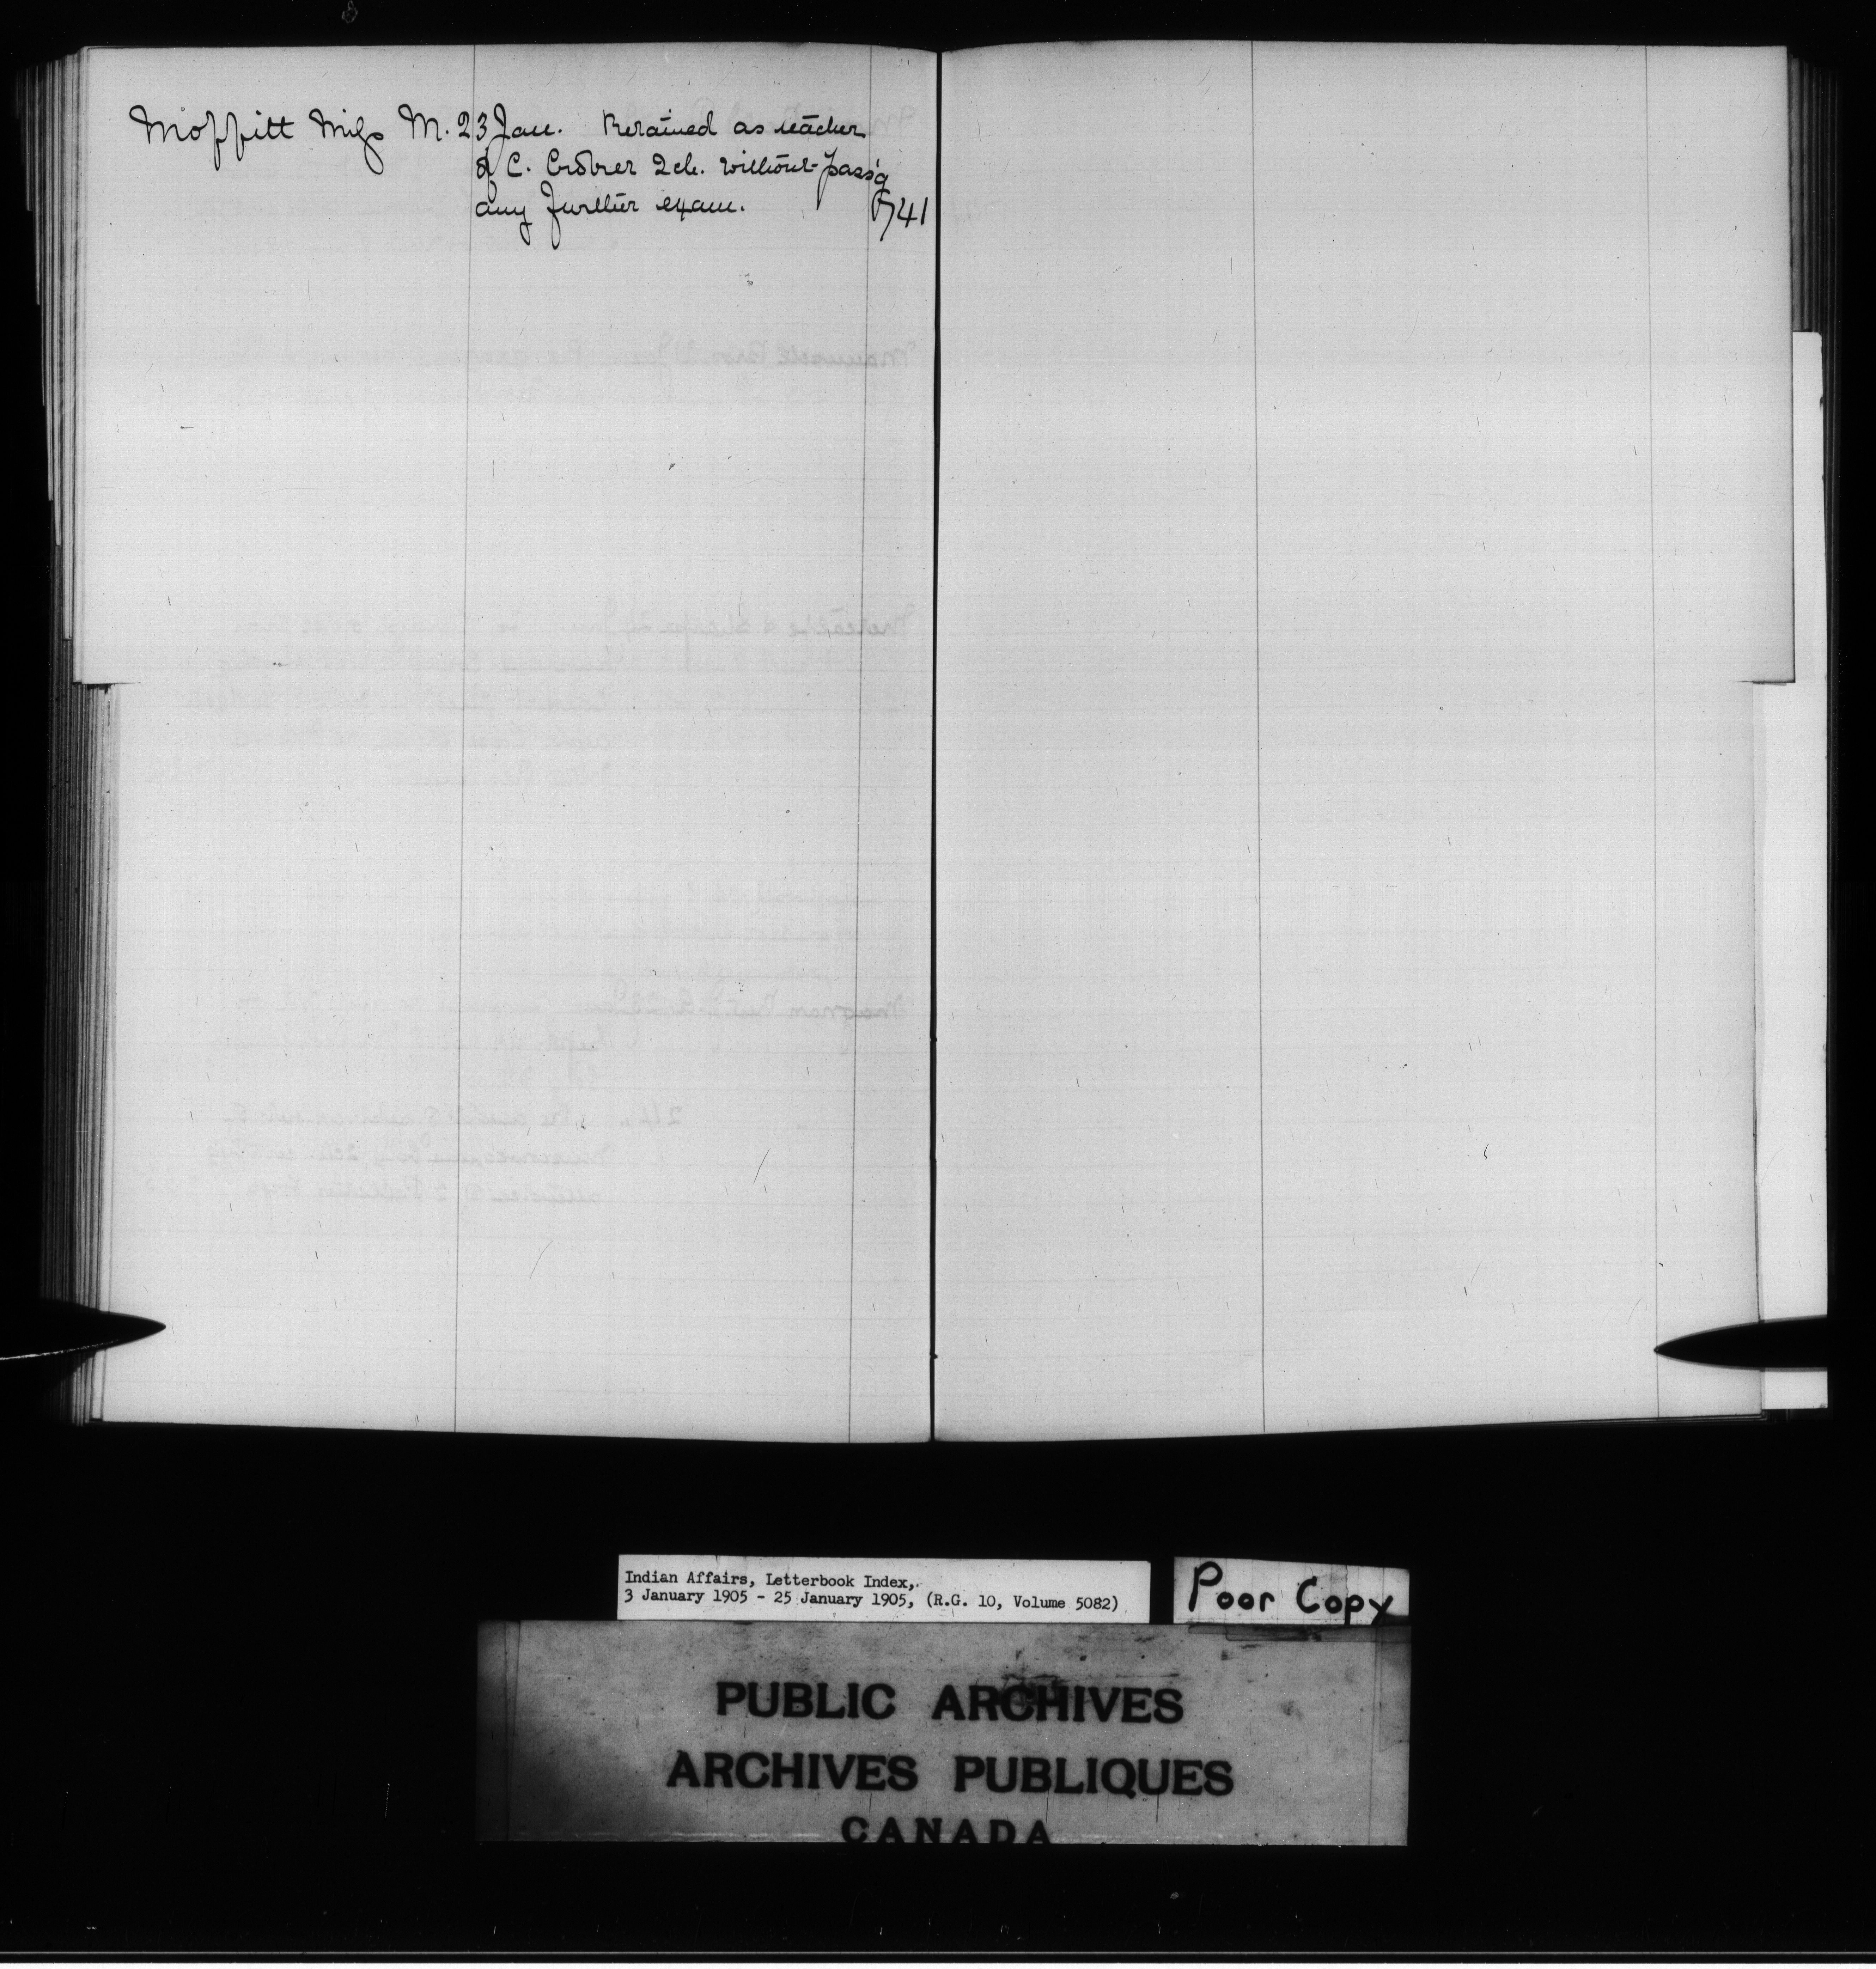 Moffitt Miss M. 23 Jan. Retained as teacher
of C. Croker Sch. without pass'g
any further exam. 741
Indian Affairs, Letterbook Index,
3 January 1905 - 25 January 1905, (R.G. 10, Volume 5082)
Poor Copy
PUBLIC ARCHIVES
ARCHIVES PUBLIQUES
CANADA